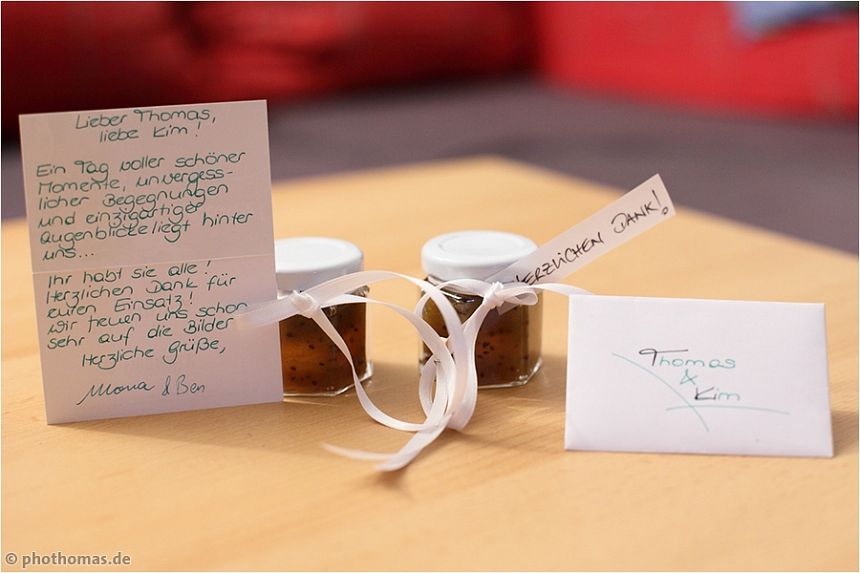 Lieber Thomas,
liebe Kim!
Ein Tag voller schöner
Momente, unvergess-
licher Begegnungen
und einzigartiger
Augenblicke liegt hinter
uns...
Ihr habt sie alle!
Herzlichen Dank für
euren Einsatz!
Wir freuen uns schon
sehr auf die Bilder
Herzliche Grüße,
Mona & Ben
HERZLICHEN DANK!
Thomas
&
Kim
© phothomas.de